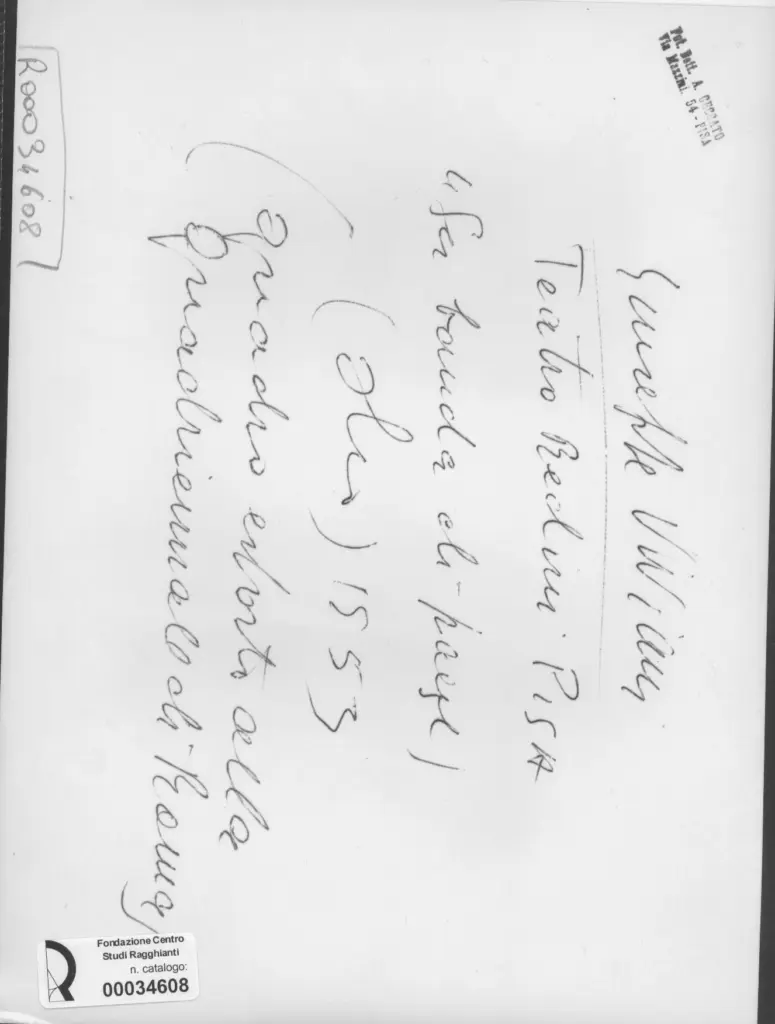 Giuseppe Viviani
Teatro Redini PISA
"La banda di paese)
(olio) 1953
(quadro esposto alla
Quadriennale di Roma)
R00034608
Fot. Dott. A.
Via Mazzini, 54 - PISA
Fondazione Centro
Studi Ragghianti
n. catalogo:
00034608